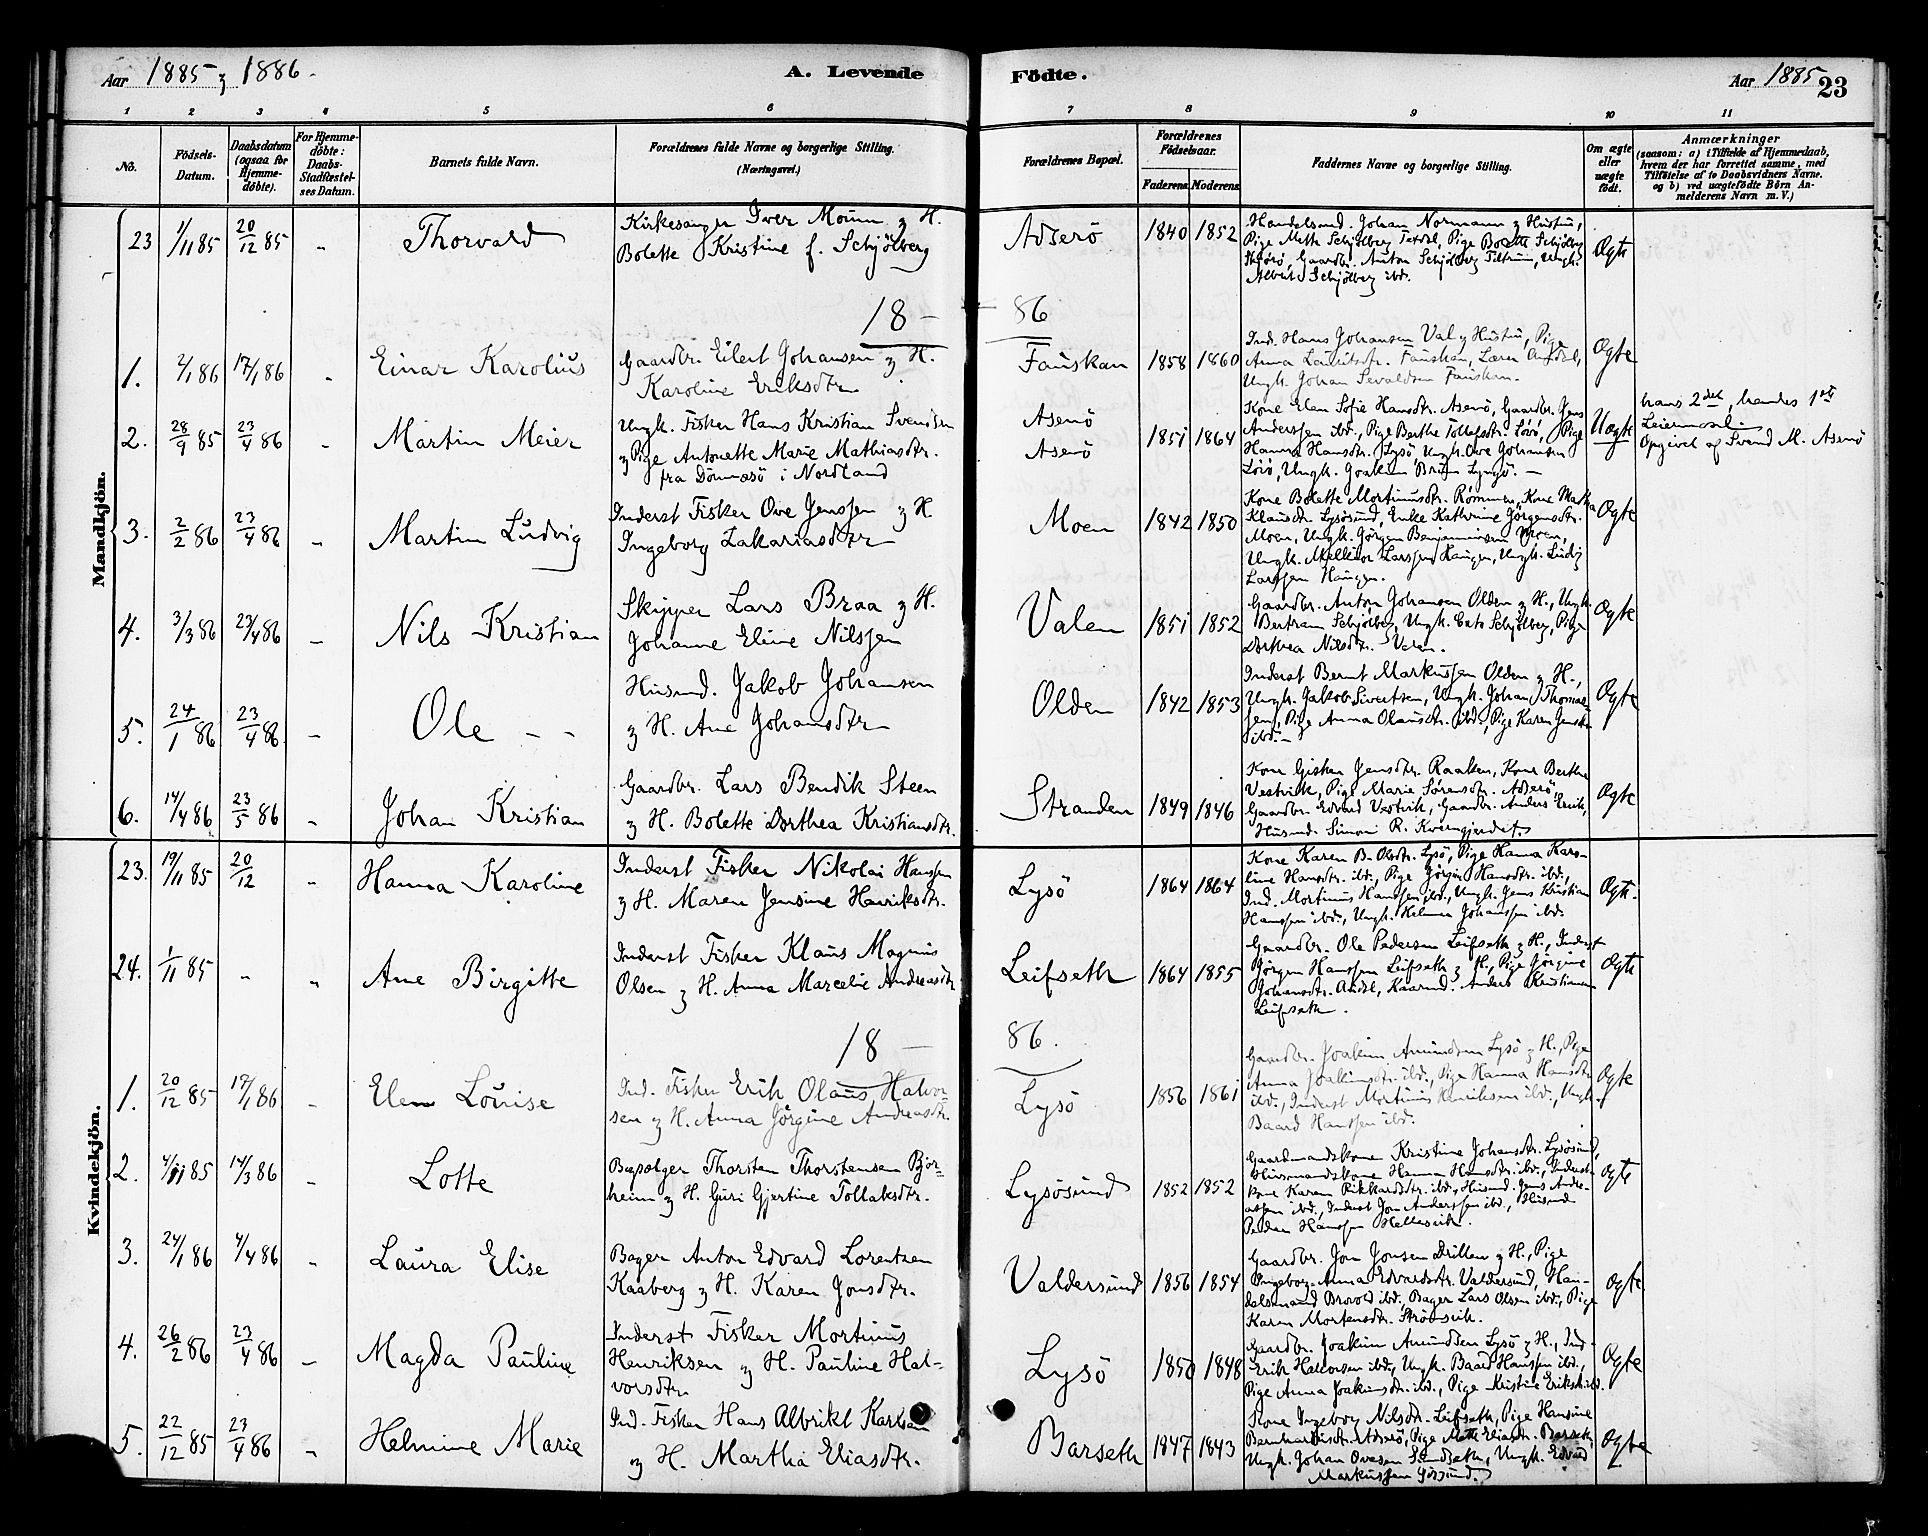 Aar 1885 & 1886.
A. Levende
Födte.
Aar 1885
23
1 2 3 4 5 6 7 8 9 10 11
No.
Födsels-
Datum.
Daabsdatum
(ogsaa for
Hjemme-
döbte).
For Hjemme-
döbte:
Daabs-
Stadfæstel-
ses Datum.
Barnets fulde Navn.
Forældrenes fulde Navne og borgerlige Stilling.
(Næringsvei.)
Forældrenes Bopæl.
Forældrenes
Födselsaar.
Faderens. Moderens.
Faddernes Navne og borgerlige Stilling.
Om ægte
eller
uægte
født.
Anmærkninger
(saasom: a) i Tilfælde af Hjemmedaab,
hvem der har forrettet samme, med
Tilföielse af to Daabsvidners Navne.
og b) ved uægtefödte Börn An-
melderens Navn m. V.)
Mandkjön.
23 1/11 85 20/12 85 " Thorvald
Kirkesanger Iver Moum & H.
Bolette Kristine f. Schjölberg
Adserö 1840 1852
Handelsmd. Johan Normann & Hustru,
Pige Mette Schjölberg Pige Bolette Schjölberg
Gaardbr. Anton Schjölberg Ungk.
Albrikt Schjölberg ibd.
Ægte
18-86
1. 2/1 86 17/1 86 " Einar Karolius
Gaardbr. Eilert Johansen & H.
Karoline Eriksdtr.
Fauskan 1858 1860
Ind. Hans Johansen Val & Hustru, Pige
Anna Lauritsdtr. Fauskan, Lærer
Ungk. Johan Sevaldsen Fauskan.
Ægte
2. 28/9 85 23/4 86 " Martin Meier
Ungk. Fisker Hans Kristian Svendsen
& Pige Antonette Marie Mathiasdtr.
fra Dönnæsö i Nordland
Asenö
Asenö
1851 1864
Kone Elen Sofie Hansdtr. Asenö, Gaardbr. Jens
Anderssen ibd., Pige Berthe Tollefsdtr. Pige
Hanna Hansdtr. Lysö, Ungk. Ove Johansen
Ungk. Joakim
Uægte
hans 2det, hendes 1ste
Leiermaal.
Opgivet af Svend M. Asenö
3. 2/2 86 23/4 86 " Martin Ludvig
Inderst Fisker Ove Jenssen & H
Ingeborg Zakariasdtr
Moen 1842 1850
Kone Bolette Mortinusdtr. Rømmen, Kone Martha
Klausdtr. Lysösund, Enke Kathrine Jörgensdtr.
Moen, Ungk. Jörgen Benjaminsen Moen,
Ungk. Melkior Larssen Haugen, Ungk. Ludvig
Larssen Haugen.
Ægte
4. 3/3 86 23/4 86 " Nils Kristian
Skipper Lars Braa & H.
Johanne Eline Nilssen
Valen 1851 1852
Gaardbr. Anton Johansen Olden & H., Ungk.
Bertram Schjölberg, Ungk. Schjölberg, Pige
Dorthea Nilsdtr. Valen.
Ægte
5. 24/1 86 23/4 86. " Ole - -
Husmd. Jakob Johansen
& H. Ane Johansdtr
Olden 1842 1853
Inderst Bernt Markussen Olden & H.,
Ungk. Jakob Sivertsen, Ungk. Johan Thomas-
sen, Pige Anna Olausdtr. ibd., Pige Karen Jensdtr
ibd.-
Ægte
6. 14/4 86 23/5 86 " Johan Kristian
Gaardbr. Lars Bendik Steen
& H. Bolette Dorthea Kristiansdtr.
Stranden 1849 1846
Kone Gisken Jensdtr. Raaken, Kone Berthe
Vestvik, Pige Marie Sørensdtr. Adserö,
Gaardbr. Edvard Vestvik, Gaardbr. Anders
Husmd. Simon R. Kværngjerdet.
Ægte
Kvindekjön.
23. 19/11 85 20/12 " Hanna Karoline
Inderst Fisker Nikolai Hanssen
& H. Maren Jensine Henriksdtr.
Lysö 1864 1864
Kone Karen B. Olsdtr. Lysö, Pige Hanna Karo-
line Hansdtr. ibd., Pige Jörgine Hansdtr. ibd.,
Ind. Mortinus Hanssen ibd., Ungk. Jens Kristian
Hanssen ibd., Ungk. Helmer Johanssen ibd.
Ægte.
24. 1/11 85 " " Ane Birgitte
Inderst Fisker Klaus Magnus
Olsen & H. Anna Marcelie Andreasdtr
Leifseth 1864 1855
Gaardbr. Ole Pedersen Leifseth & H., Inderst
Jörgen Hanssen Leifseth & H., Pige Jörgine
Johansdtr. Kaarmd. Anders Kristiansen
Leifseth.
Ægte
18-86.
1. 20/12 85 17/1 86 " Elen Louise
Ind. Fisker Erik Olaus Halvor-
sen & H. Anna Jörgine Andreasdtr.
Lysö 1856 1861
Gaardbr. Joakim Amundsen Lysö & H., Pige
Anna Joakimsdtr. ibd., Pige Hanna Hansdtr
ibd., Inderst Mortinus Henriksen ibd., Ungk.
Baard Hanssen ibd.
Ægte
2. 4/11 85 14/3 86 " Lotte
Bøgsølger Thorsten Thorstensen Bjor-
heim & H. Guri Gjertine Tollaksdtr.
Lysösund 1852 1852
Gaardmandskone Kristine Johansdtr. Lysösund,
Husmandskone Hanna Hansdtr. ibd., Inderst-
kone Karen Rikkardsdtr. ibd., Husmd. Jens Andre-
assen ibd., Inderst Jon Anderssen ibd., Husmd
Peder Hanssen Hellesvik.
Ægte
3. 24/1 86 4/4 86 " Laura Elise
Bager Anton Edvard Lorentzen
Kaaberg & H. Karen Jonsdtr.
Valdersund 1856 1854
Gaardbr. Jon Jonsen Drillen & H., Pige
Ingeborg Anna Edvardsdtr. Valdersund, Han-
delsmand Brovold ibd, Bager Lars Olsen ibd., Pige
Karen Mortensdtr. Strömsvik.
Ægte
4. 26/2 86 23/4 86 " Magda Pauline
Inderst Fisker Mortinus
Henriksen & H. Pauline Hal-
vorsdtr
Lysö 1850 1848
Gaardbr. Joakim Amundsen Lysö & H., Ind.
Erik Halvorsen ibd., Ungk. Baard Hanssen ibd.,
Pige Anna Joakimsdtr. ibd., Pige Kristine Eriksdtr ibd.
Ægte
5. 22/12 85 23/4 86 " Helmine Marie
Ind. Fisker Hans Albrikt Karlsen
& H. Martha Eliasdtr.
Barseth 1847 1843
Kone Ingeborg Nilsdtr. Leifseth, Pige Hansine
Bernhardsdtr. Adserö, Pige Mette Eliasdtr. Barseth,
Ungk. Johan Ovesen Sundseth, Ungk. Edvard
Markussen
Ægte